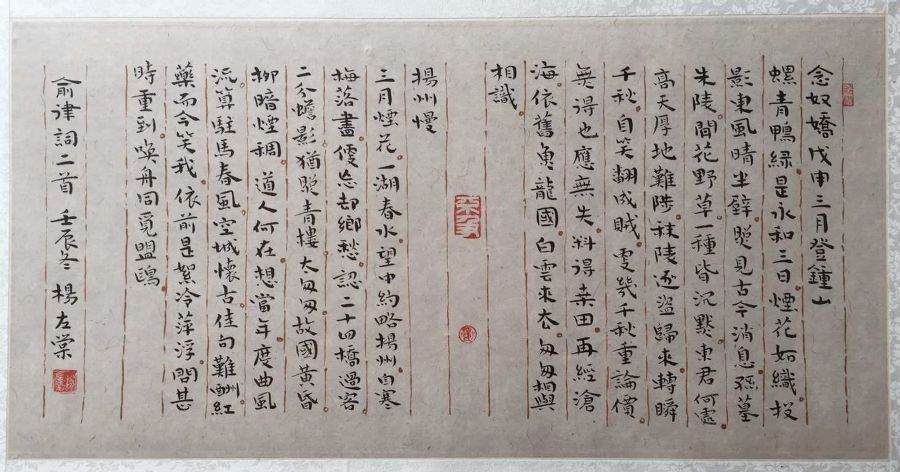 念奴嬌戊申三月登鍾山
螺青鴨綠是永和三日煙花如織投
影東風晴半壁照見古今消息孫墓
朱陵閒花野草一種皆沉默東君何處
高天厚地難陟秣陵逐盜歸來轉瞬
千秋自笑翻成賊更幾千秋重論價
無得也應無失料得桑田再經滄
海依舊魚龍國白雲來去匆匆相與
相識
揚州慢
三月煙花一湖春水望中約略揚州自寒
梅落盡便忘却鄉愁認二十四橋過客
二分蟾影猶照青樓太匆匆故國黃昏
柳暗煙稠道人何在想當年度曲風
流算駐馬春風空城懷古佳句難酬紅
藥而今笑我依前是絮冷萍浮問甚
時重到喚舟同覓盟鷗
俞律詞二首壬辰冬楊左棠